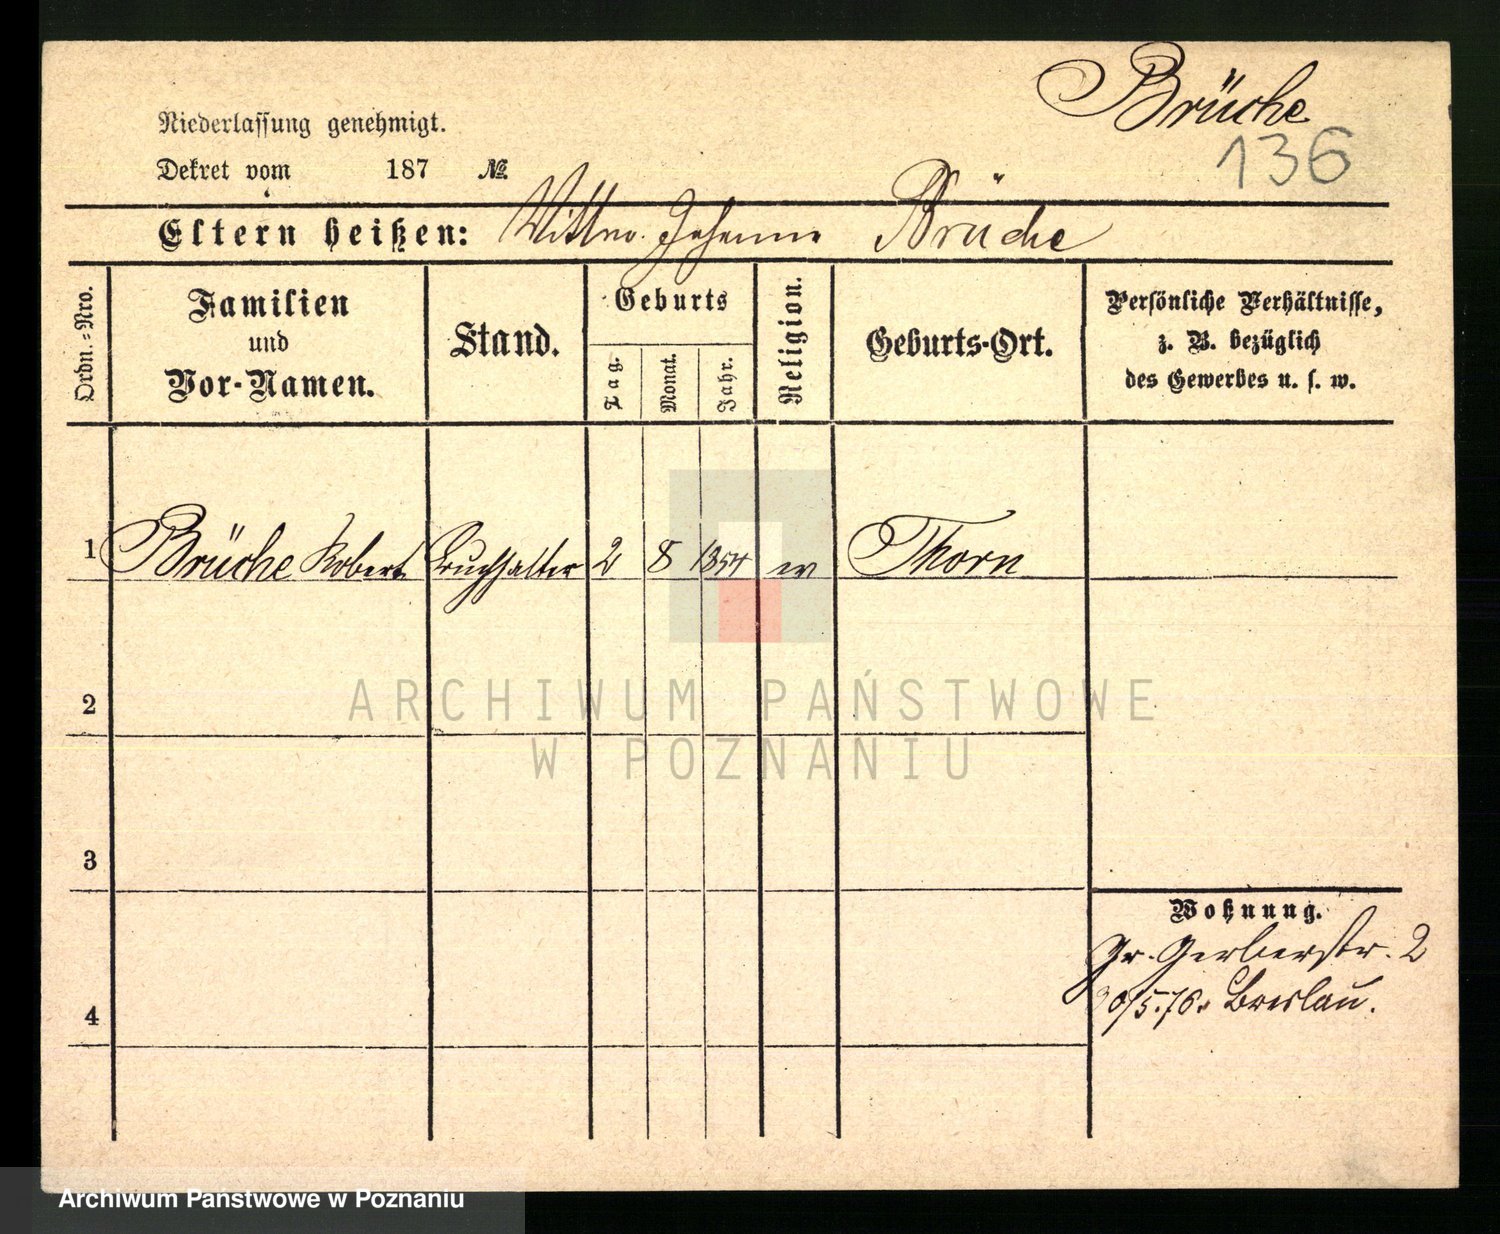 Brüche
136
Niederlassung genehmigt.
Dekret vom 187 №.
Eltern heißen: Wittwe. Johanna Brüche
Ordn.-Nro.
Familien und Vor-Namen.
Stand.
Geburts
Tag.
Monat.
Jahr.
Religion.
Geburts-Ort.
Persönliche Verhältnisse,
z. B. bezüglich
des Gewerbes u. s. w.
1 Brüche Robert Buchhalter 2 8 1854 ev Thorn
2
ARCHIWUM PAŃSTWOWE
W POZNANIU
3
Wohnung.
Gr. Gerberstr. 2
30/5.76. Breslau.
4
Archiwum Państwowe w Poznaniu